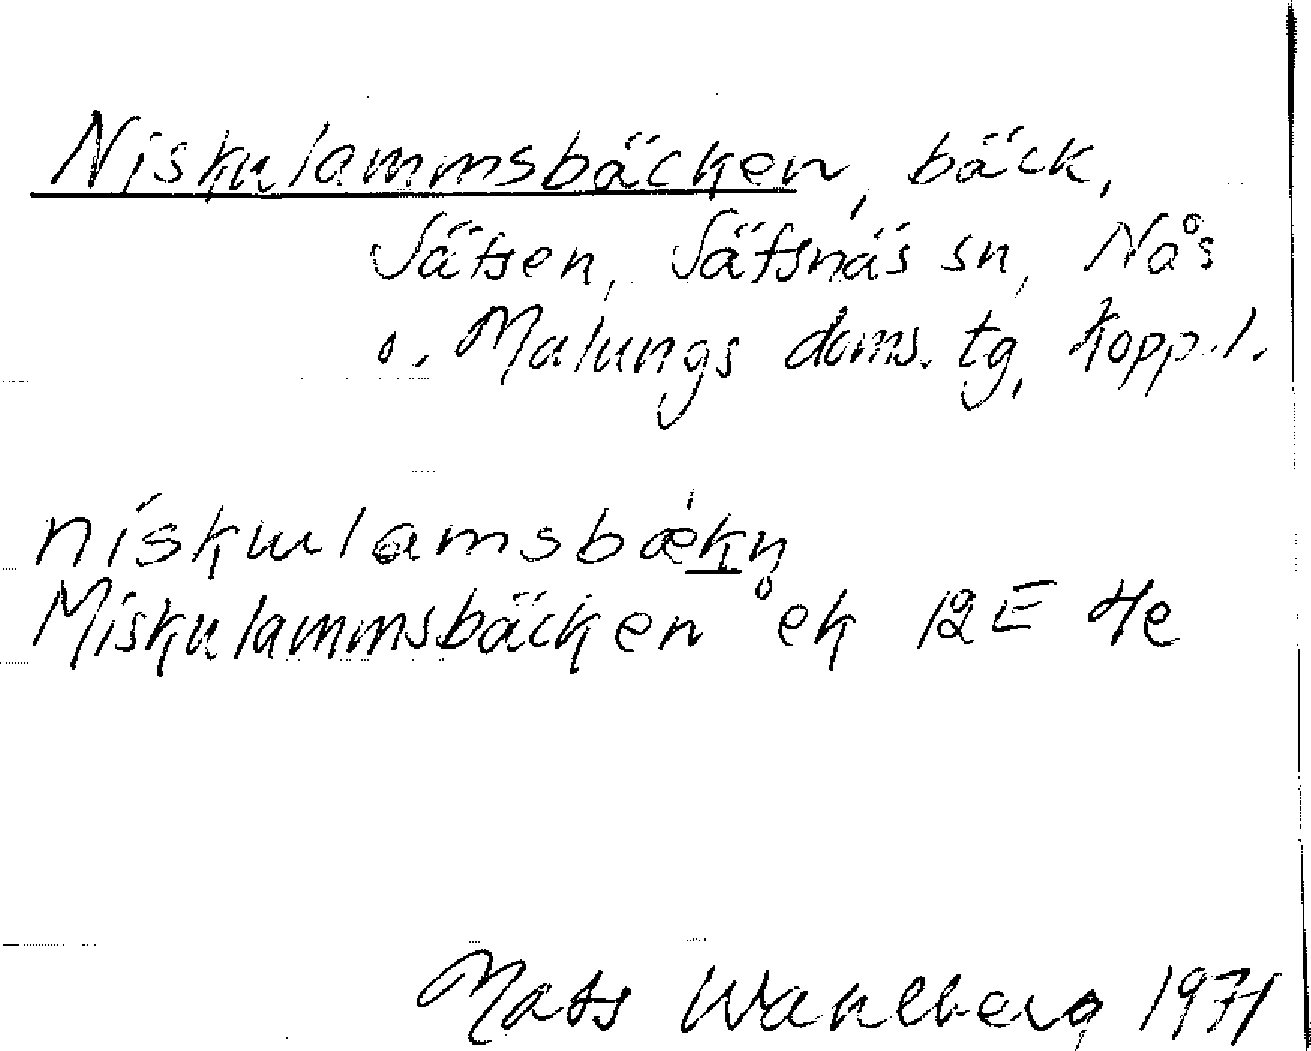 Niskulammsbäcken, bäck,
Sätsen, Säfsnäs sn, Nås
o. Malungs doms. tg, Kopp. l.
nískɯlamsbæ̀kn̥
Miskulammsbäcken ek 12E 4e
Mats Wahlberg 1971